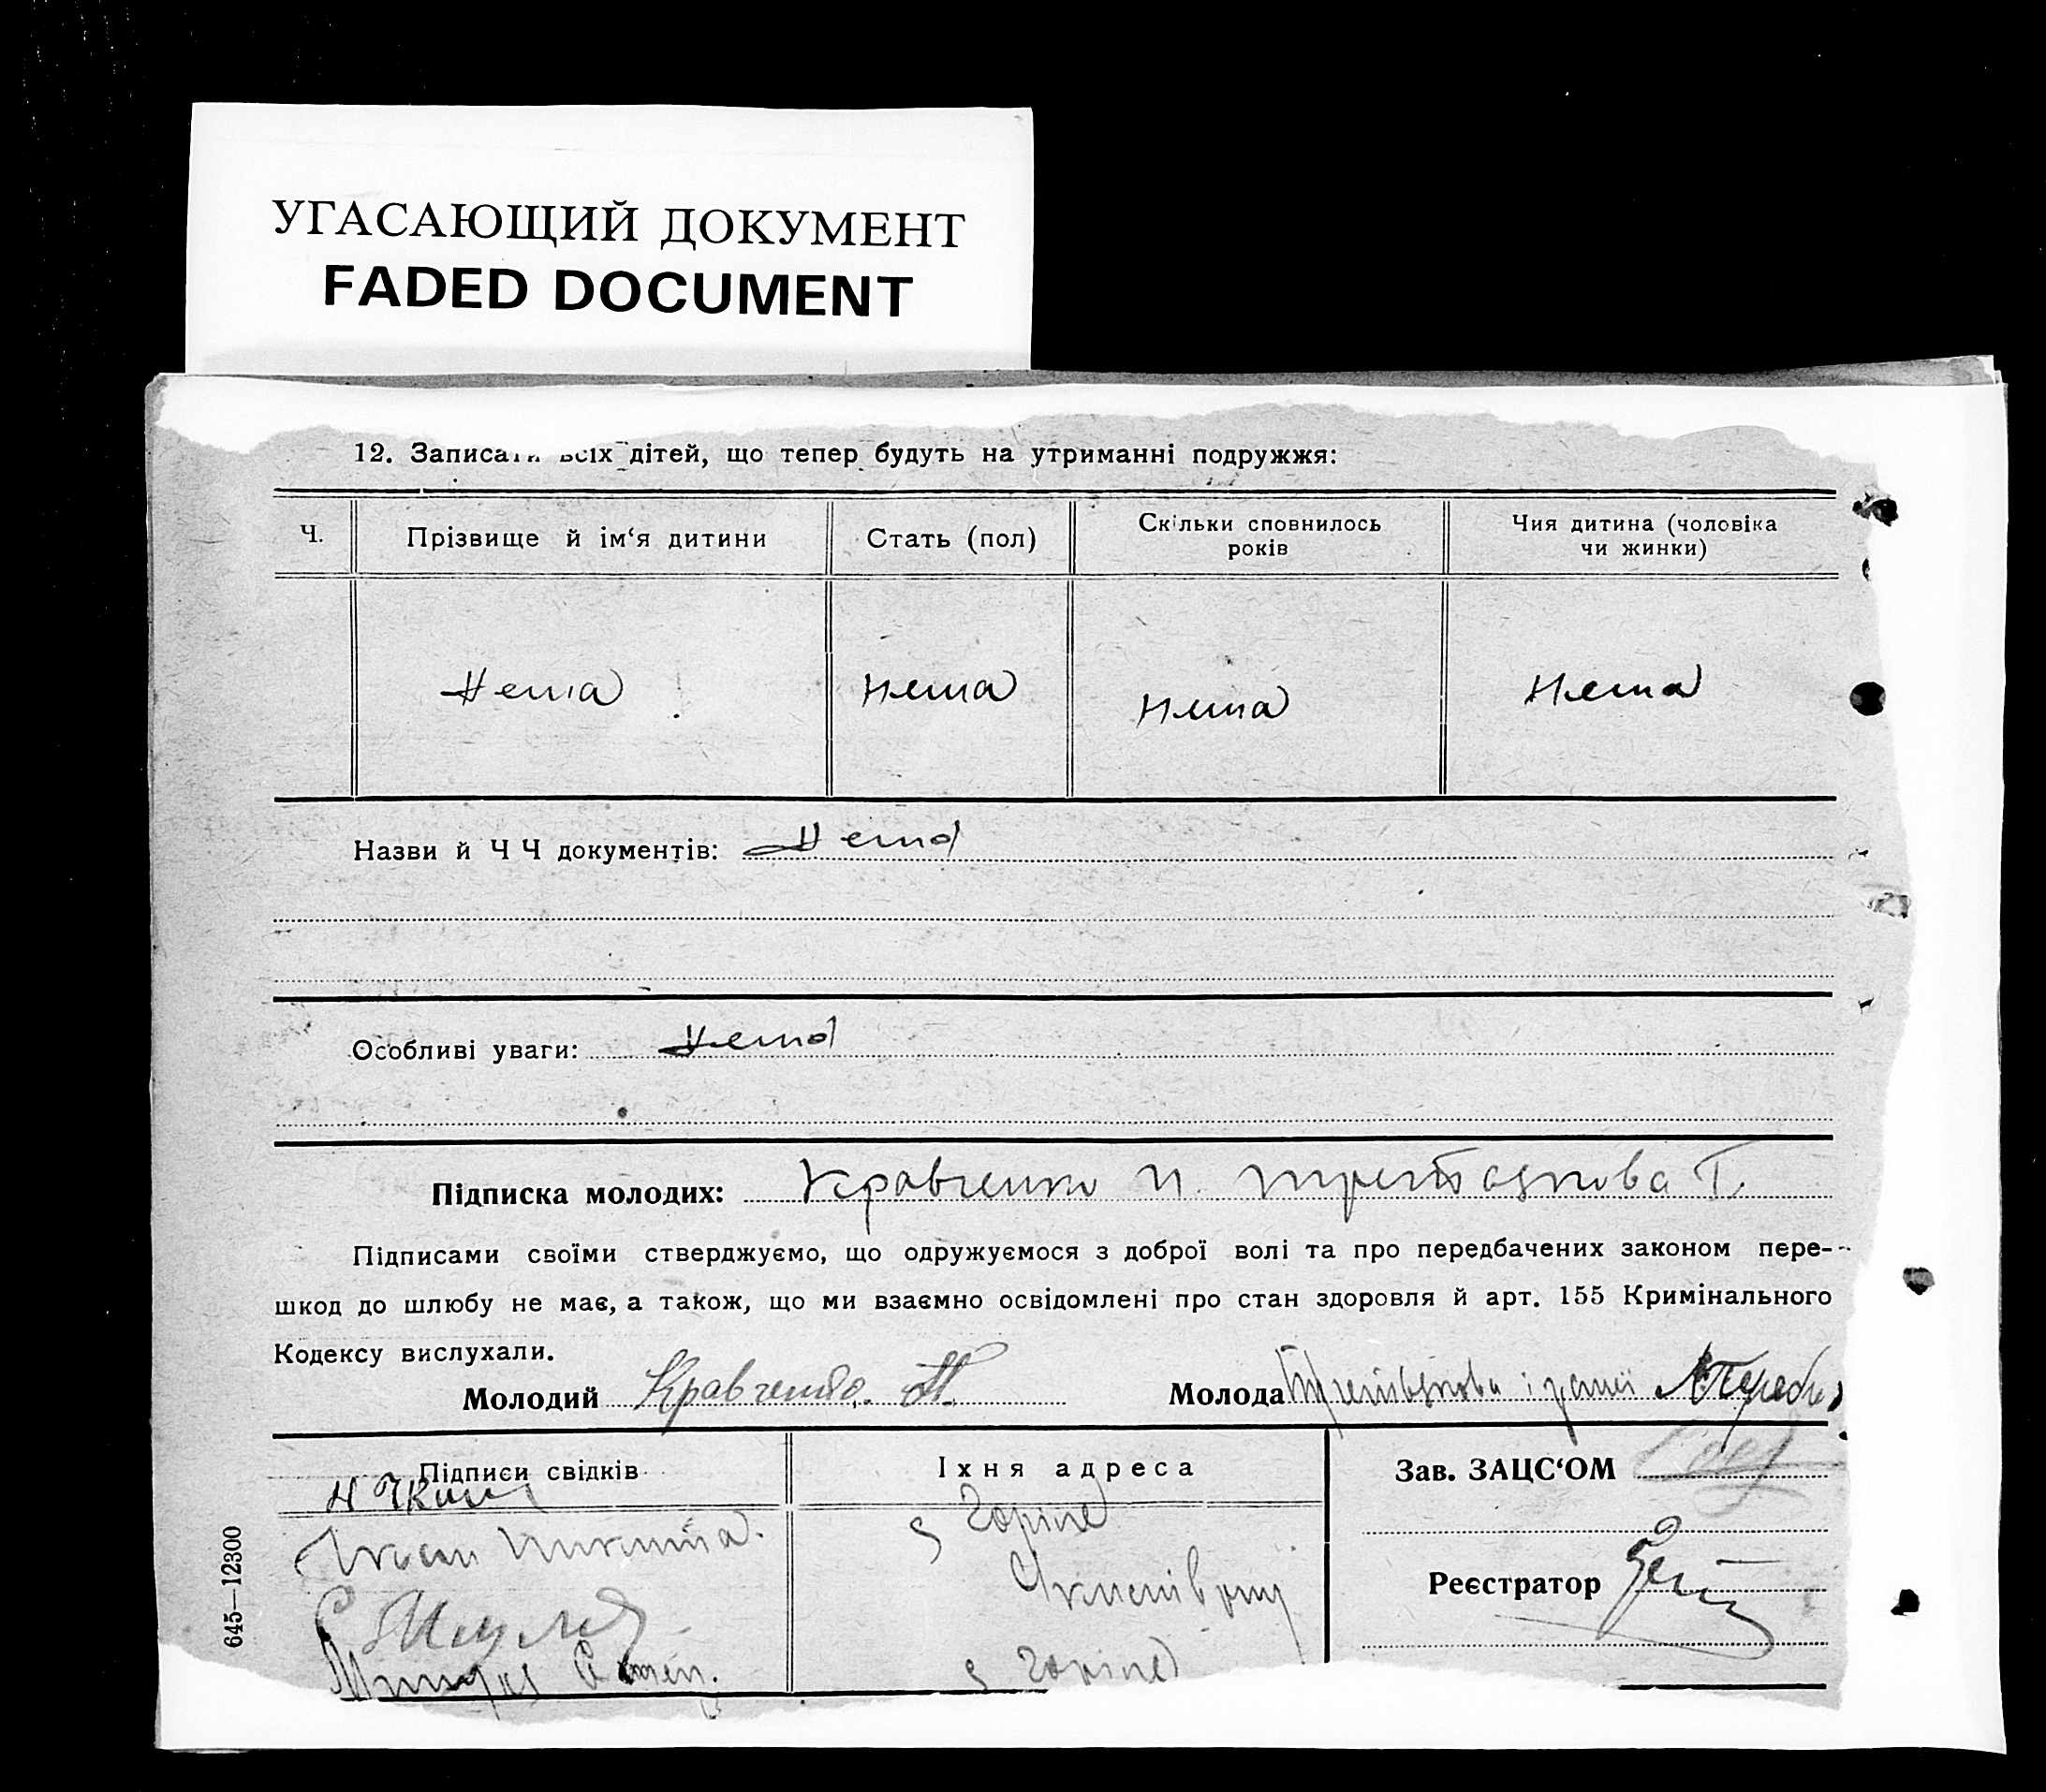 УГАСАЮЩИЙ ДОКУМЕНТ
FADED DOCUMENT
12. Записати всіх дітей, що тепер будуть на утриманні подружжя:
Ч. Прізвище й ім‘я дитини Стать (пол) Скільки сповнилось років Чия дитина (чоловіка чи жинки)
Нема Нема Нема Нема
Назви й Ч Ч документів: Нема
Особливі уваги: Нема
Підписка молодих: Кравченко Т.
Підписами своїми стверджуємо, що одружуємося з доброї волі та про передбачених законом пере-
шкод до шлюбу не має, а також, що ми взаємно освідомлені про стан здоровля й арт. 155 Кримінального
Кодексу вислухали.
Молодий Кравченко Молода
Підписи свідків Їхня адреса Зав. ЗАЦС‘ОМ
Реєстратор
645—12300